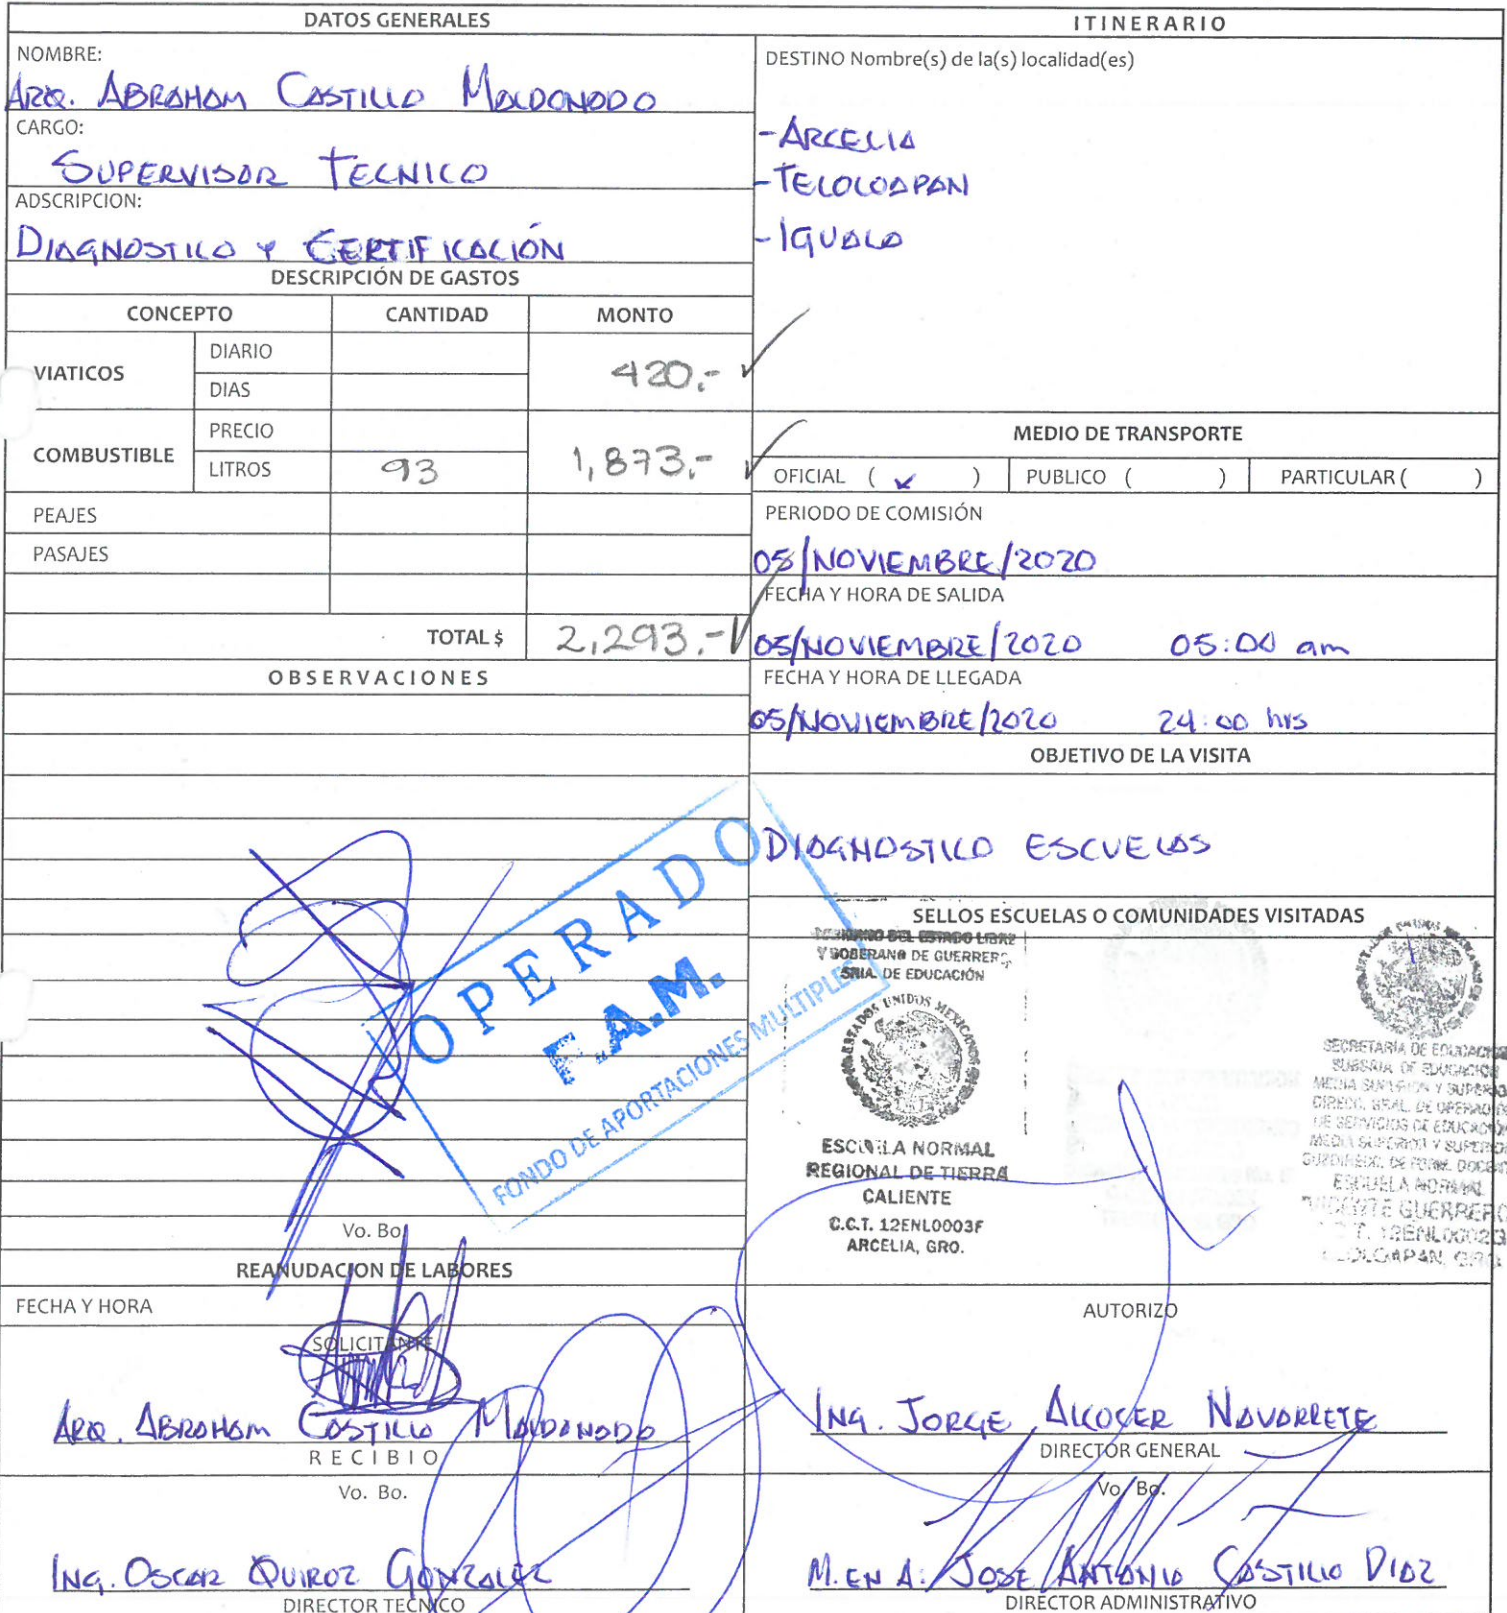 DATOS GENERALES
NOMBRE:
ARQ. ABRAHAM CASTILLO MALDONADO
CARGO:
SUPERVISOR TECNICO
ADSCRIPCION:
DIAGNOSTICO Y CERTIFICACIÓN
DESCRIPCIÓN DE GASTOS
CONCEPTO CANTIDAD MONTO
VIATICOS
DIARIO
DIAS
420.-
COMBUSTIBLE
PRECIO
LITROS 93
1,873.-
PEAJES
PASAJES
TOTAL $ 2,293.-
OBSERVACIONES
OPERADO
F.A.M.
FONDO DE APORTACIONES MULTIPLES
Vo. Bo.
REANUDACION DE LABORES
FECHA Y HORA
SOLICITANTE
ARQ. ABRAHAM CASTILLO MALDONADO
RECIBIO
Vo. Bo.
ING. OSCAR QUIROZ GONZALEZ
DIRECTOR TECNICO
ITINERARIO
DESTINO Nombre(s) de la(s) localidad(es)
- ARCELIA
- TELOLOAPAN
- IGUALA
MEDIO DE TRANSPORTE
OFICIAL ( ✓ ) PUBLICO ( ) PARTICULAR ( )
PERIODO DE COMISIÓN
05/NOVIEMBRE/2020
FECHA Y HORA DE SALIDA
05/NOVIEMBRE/2020 05:00 am
FECHA Y HORA DE LLEGADA
05/NOVIEMBRE/2020 24:00 hrs
OBJETIVO DE LA VISITA
DIAGNOSTICO ESCUELAS
SELLOS ESCUELAS O COMUNIDADES VISITADAS
GOBIERNO DEL ESTADO LIBRE
Y SOBERANO DE GUERRERO
SRIA. DE EDUCACIÓN
ESTADOS UNIDOS MEXICANOS
ESCUELA NORMAL
REGIONAL DE TIERRA
CALIENTE
C.C.T. 12ENL0003F
ARCELIA, GRO.
ESTADOS UNIDOS MEXICANOS
SECRETARÍA DE EDUCACIÓN
SUBSRIA. DE EDUCACIÓN
MEDIA SUPERIOR Y SUPERIOR
DIRECC. GRAL. DE OPERACIÓN
DE SERVICIOS DE EDUCACIÓN
MEDIA SUPERIOR Y SUPERIOR
SUBDIRECC. DE FORM. DOCENTE
ESCUELA NORMAL
"VICENTE GUERRERO
C.C.T. 12ENL0002G
TELOLOAPAN, GRO.
AUTORIZO
ING. JORGE ALCOCER NAVARRETE
DIRECTOR GENERAL
Vo. Bo.
M. EN A. JOSE ANTONIO CASTILLO DIAZ
DIRECTOR ADMINISTRATIVO